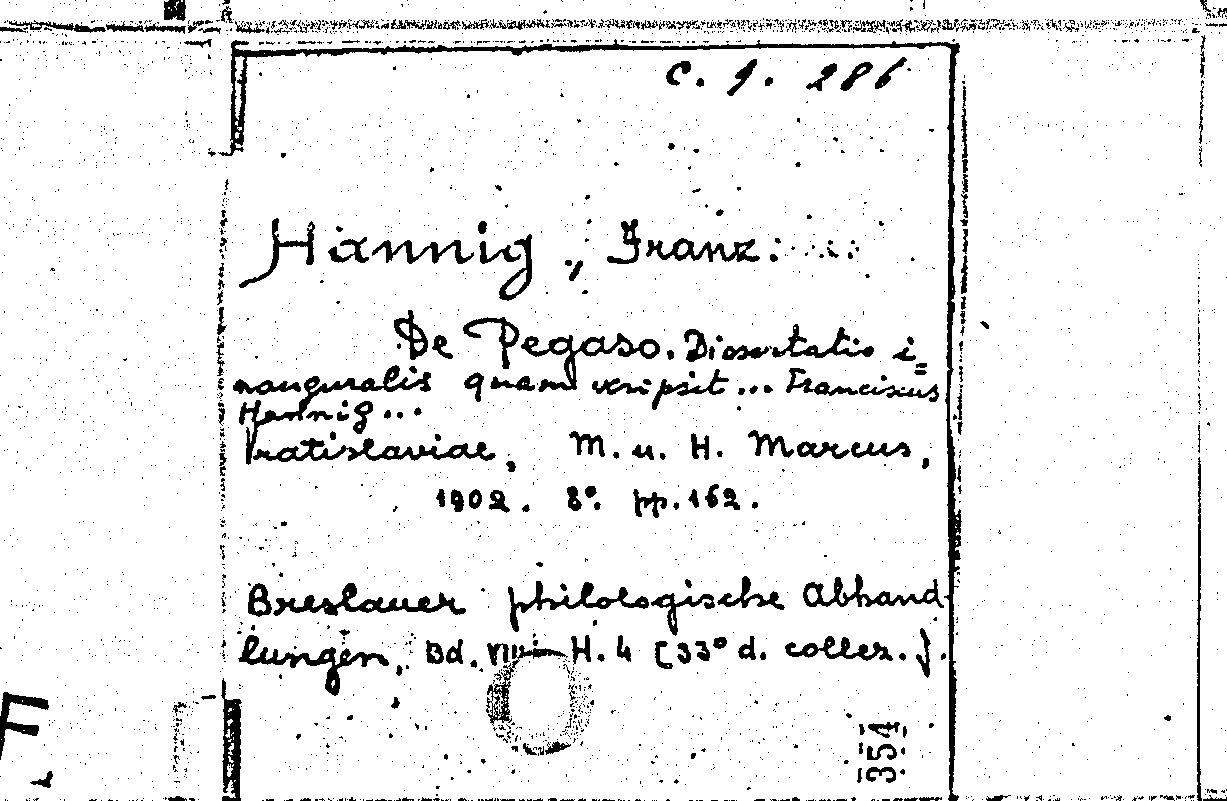 C. 9. 286
Hannig, Franz:
De Pegaso. Dissertatio i=
nauguralis quam scripsit ... Franciscus
Hannig ...
Vratislaviae, M. u. H. Marcus,
1902. 8°. pp. 162.
Breslauer philologische Abhand-
lungen, Bd. VIII H. 4 [33° d. collez.].
354
F